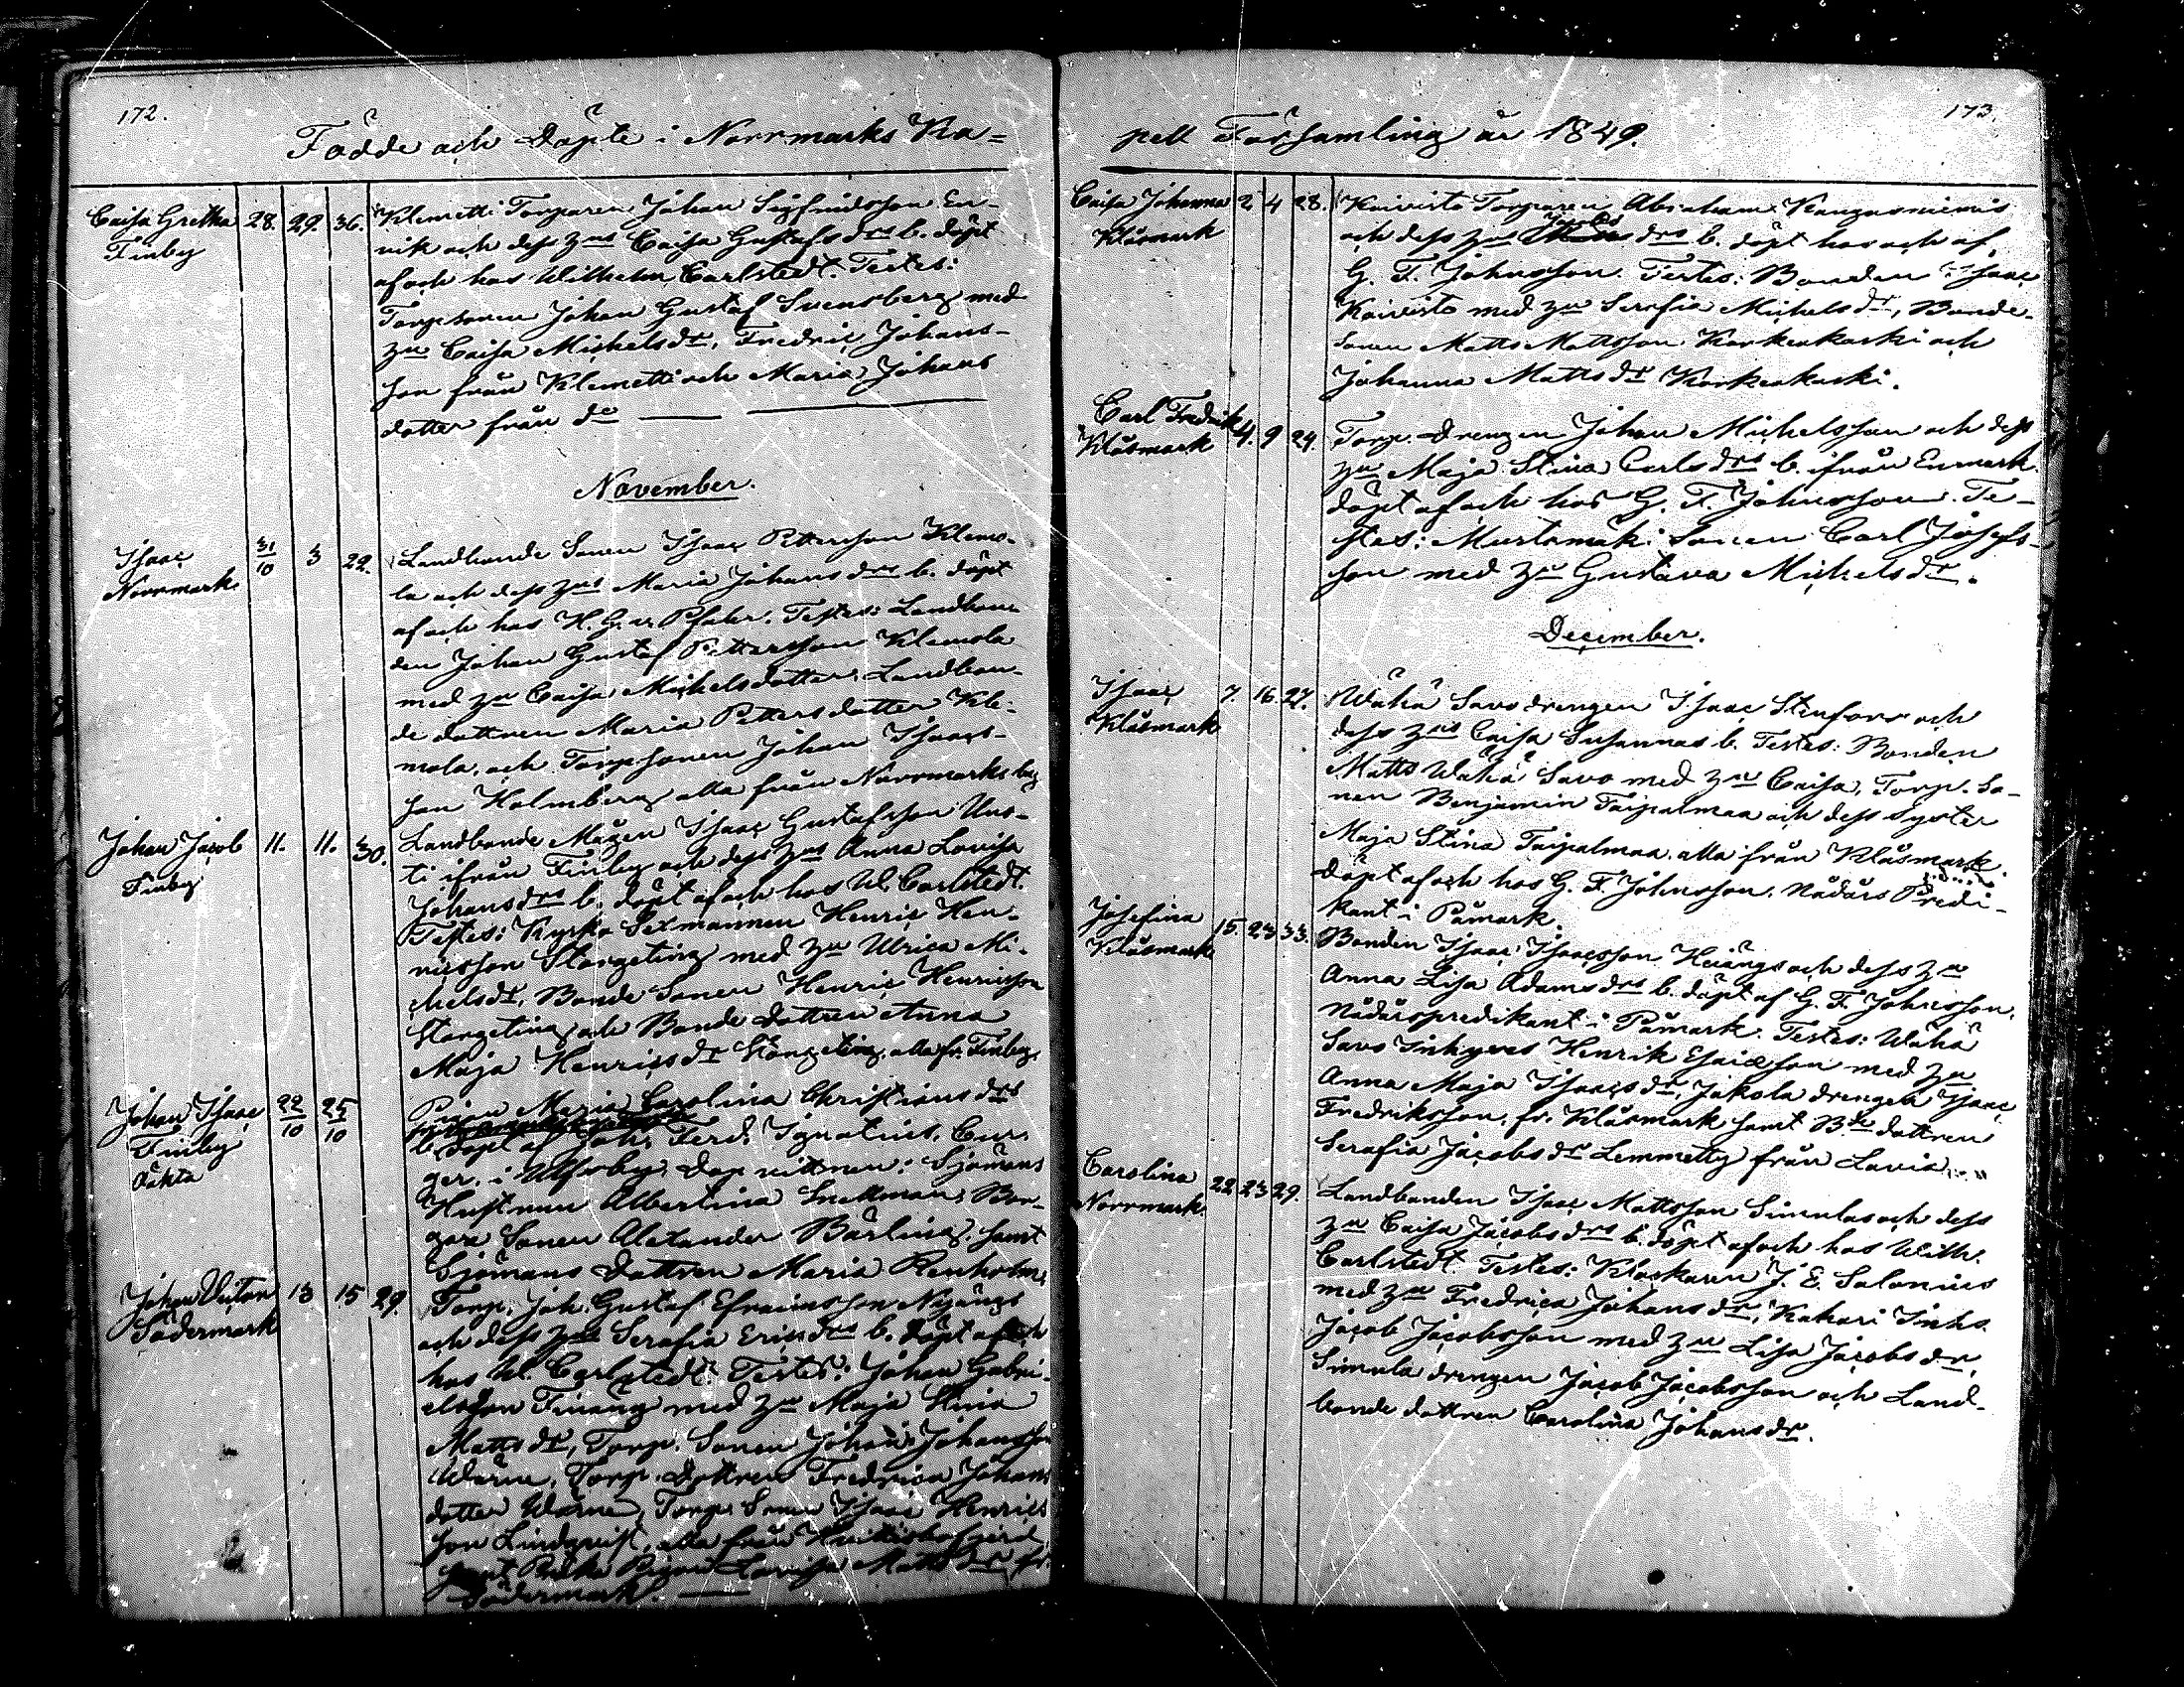 172.
Födde och Döpte i Norrmarks Ka=
Caisa Gretha 28. 29. 36. Klemetti Torparen Johan Sigfridsson En-
Finby
vik och dess hus Caisa Gustafs drs b. döpt
af och hos Wilhelm Carlstedt. Testes:
Torpsonen Johan Gustaf Svensberg med
hu Caisa Michelsdr, Fredric Johans-
son från Klemetti och Maria Johans
dotter från do
November.
Isaac 31/10 3 22. Landbonde Sonen Isaac Pettersson Klemo-
Norrmark.
la och dess hus Maria Johans drs b. döpt
af och hos H. G. v. Pfaler. Testes: Landbon-
den Johan Gustaf Pettersson Klemola
med hu Caisa Michelsdotter, Landbon-
de dottren Maria Petters dotter Kle-
mola, och Torpsonen Johan Isaacs-
son Holmberg alla från Norrmarks by
Johan Jacob 11. 11. 30. Landbonde Mågen Isaac Gustafsson Uus-
Finby
ti ifrån Finby och dess hus Anna Lovisa
Johansdrs b. döpt af och hos W. Carlstedt.
Testes: Kyrko Sexmannen Henric Hen-
ricsson Storgeting med hu Ulrica Mi-
chelsdr, Bonde Sonen Henric Henricsson
Storgeting och Bonde dottren Anna
Maja Henricsdr Storgeting, alla fr. Finby.
Johan Isaac 22/10 25/10 Pigan Maria Carolina Christians drs
Finby
Oäkta
b. döpt af Joh. Ferd. Ignatius, Cur-
ger. i Ulfsby. Dop vittnen: Sjömans
Hustrun Albertina Snellman, Bor-
gare Sonen Alexander Bärling, samt
Sjömans Dottren Maria Renholm.
Johan Victor 13 15 29. Torp. Joh. Gustaf Efraimsson Nyängs
Södermark
och dess hus Serafia Ericsdrs b. döpt af och
hos W. Carlstedt. Testes: Johan Gabri-
elsson Finäng med hu Maja Stina
Mattsdr, Torp. Sonen Johan Johansson
Wärne, Torp. Dottren Fredrica Johans
dotter Wärne, Torp. Sonen Isaac Henrics
son Lindqvist, alla från
samt Pigan Lovisa Matts dr fr.
Södermark.
173.
pell Församling år 1849.
Caisa Johanna 2 4 28. Koivisto Torparen Abraham Kangasniemis
Klåsmark
och dess hus Jacobs drs b. döpt hos och af
G. F. Johnsson. Testes: Bonden Isaac
Koivisto med hu Serafia Michelsdr, Bonde-
sonen Matts Mattsson Korkeakoski och
Johanna Mattsdr Korkeakoski.
Carl Fredrik 4. 9 24. Torp. Drengen Johan Michelsson och dess
Klåsmark
hu Maja Stina Carls drs b. ifrån Enmark
döpt af och hos G. F. Johnsson. Te-
stes: Murtomäki Sonen Carl Josefs-
son med hu Gustava Michelsdr.
December.
Isaac 7. 16. 27. Wähä Savo drengen Isaac Stenfors och
Klåsmark
dess hus Caisa Susannas b. Testes: Bonden
Matts Wähä Savo med hu Caisa, Torp. So-
nen Benjamin Taipalmaa och dess syster
Maja Stina Taipalmaa, alla från Klåsmark.
döpt af och hos G. F. Johnsson. Nådårs Predi-
kant i Påmark.
Josefina 15. 23 33. Bonden Isaac Isaacsson Heiängs och dess hu
Klåsmark
Anna Lisa Adams drs b. döpt af G. F. Johnsson.
Nådårspredikant i Påmark. Testes: Wähä
Savo Inhyses Henrik Esaiesson med hu
Anna Maja Isaacsdr, Jakola drengen Isaac
Fredriksson, fr. Klåsmark samt Bde dottren
Serafia Jacobs dr Lemmetty från Lavia.
Carolina 22 23 29. Landbonden Isaac Mattsson Simulas och dess
Norrmark
hu Caisa Jacobs drs b. döpt af och hos Wilh.
Carlstedt. Testes: Klockaren J. E. Salonius
med hu Fredrica Johansdr, Kahari Inhs.
Jacob Jacobsson med hu Lisa Jacobsdr,
Simula drengen Jacob Jacobsson och Land-
bonde dottren Carolina Johansdr.